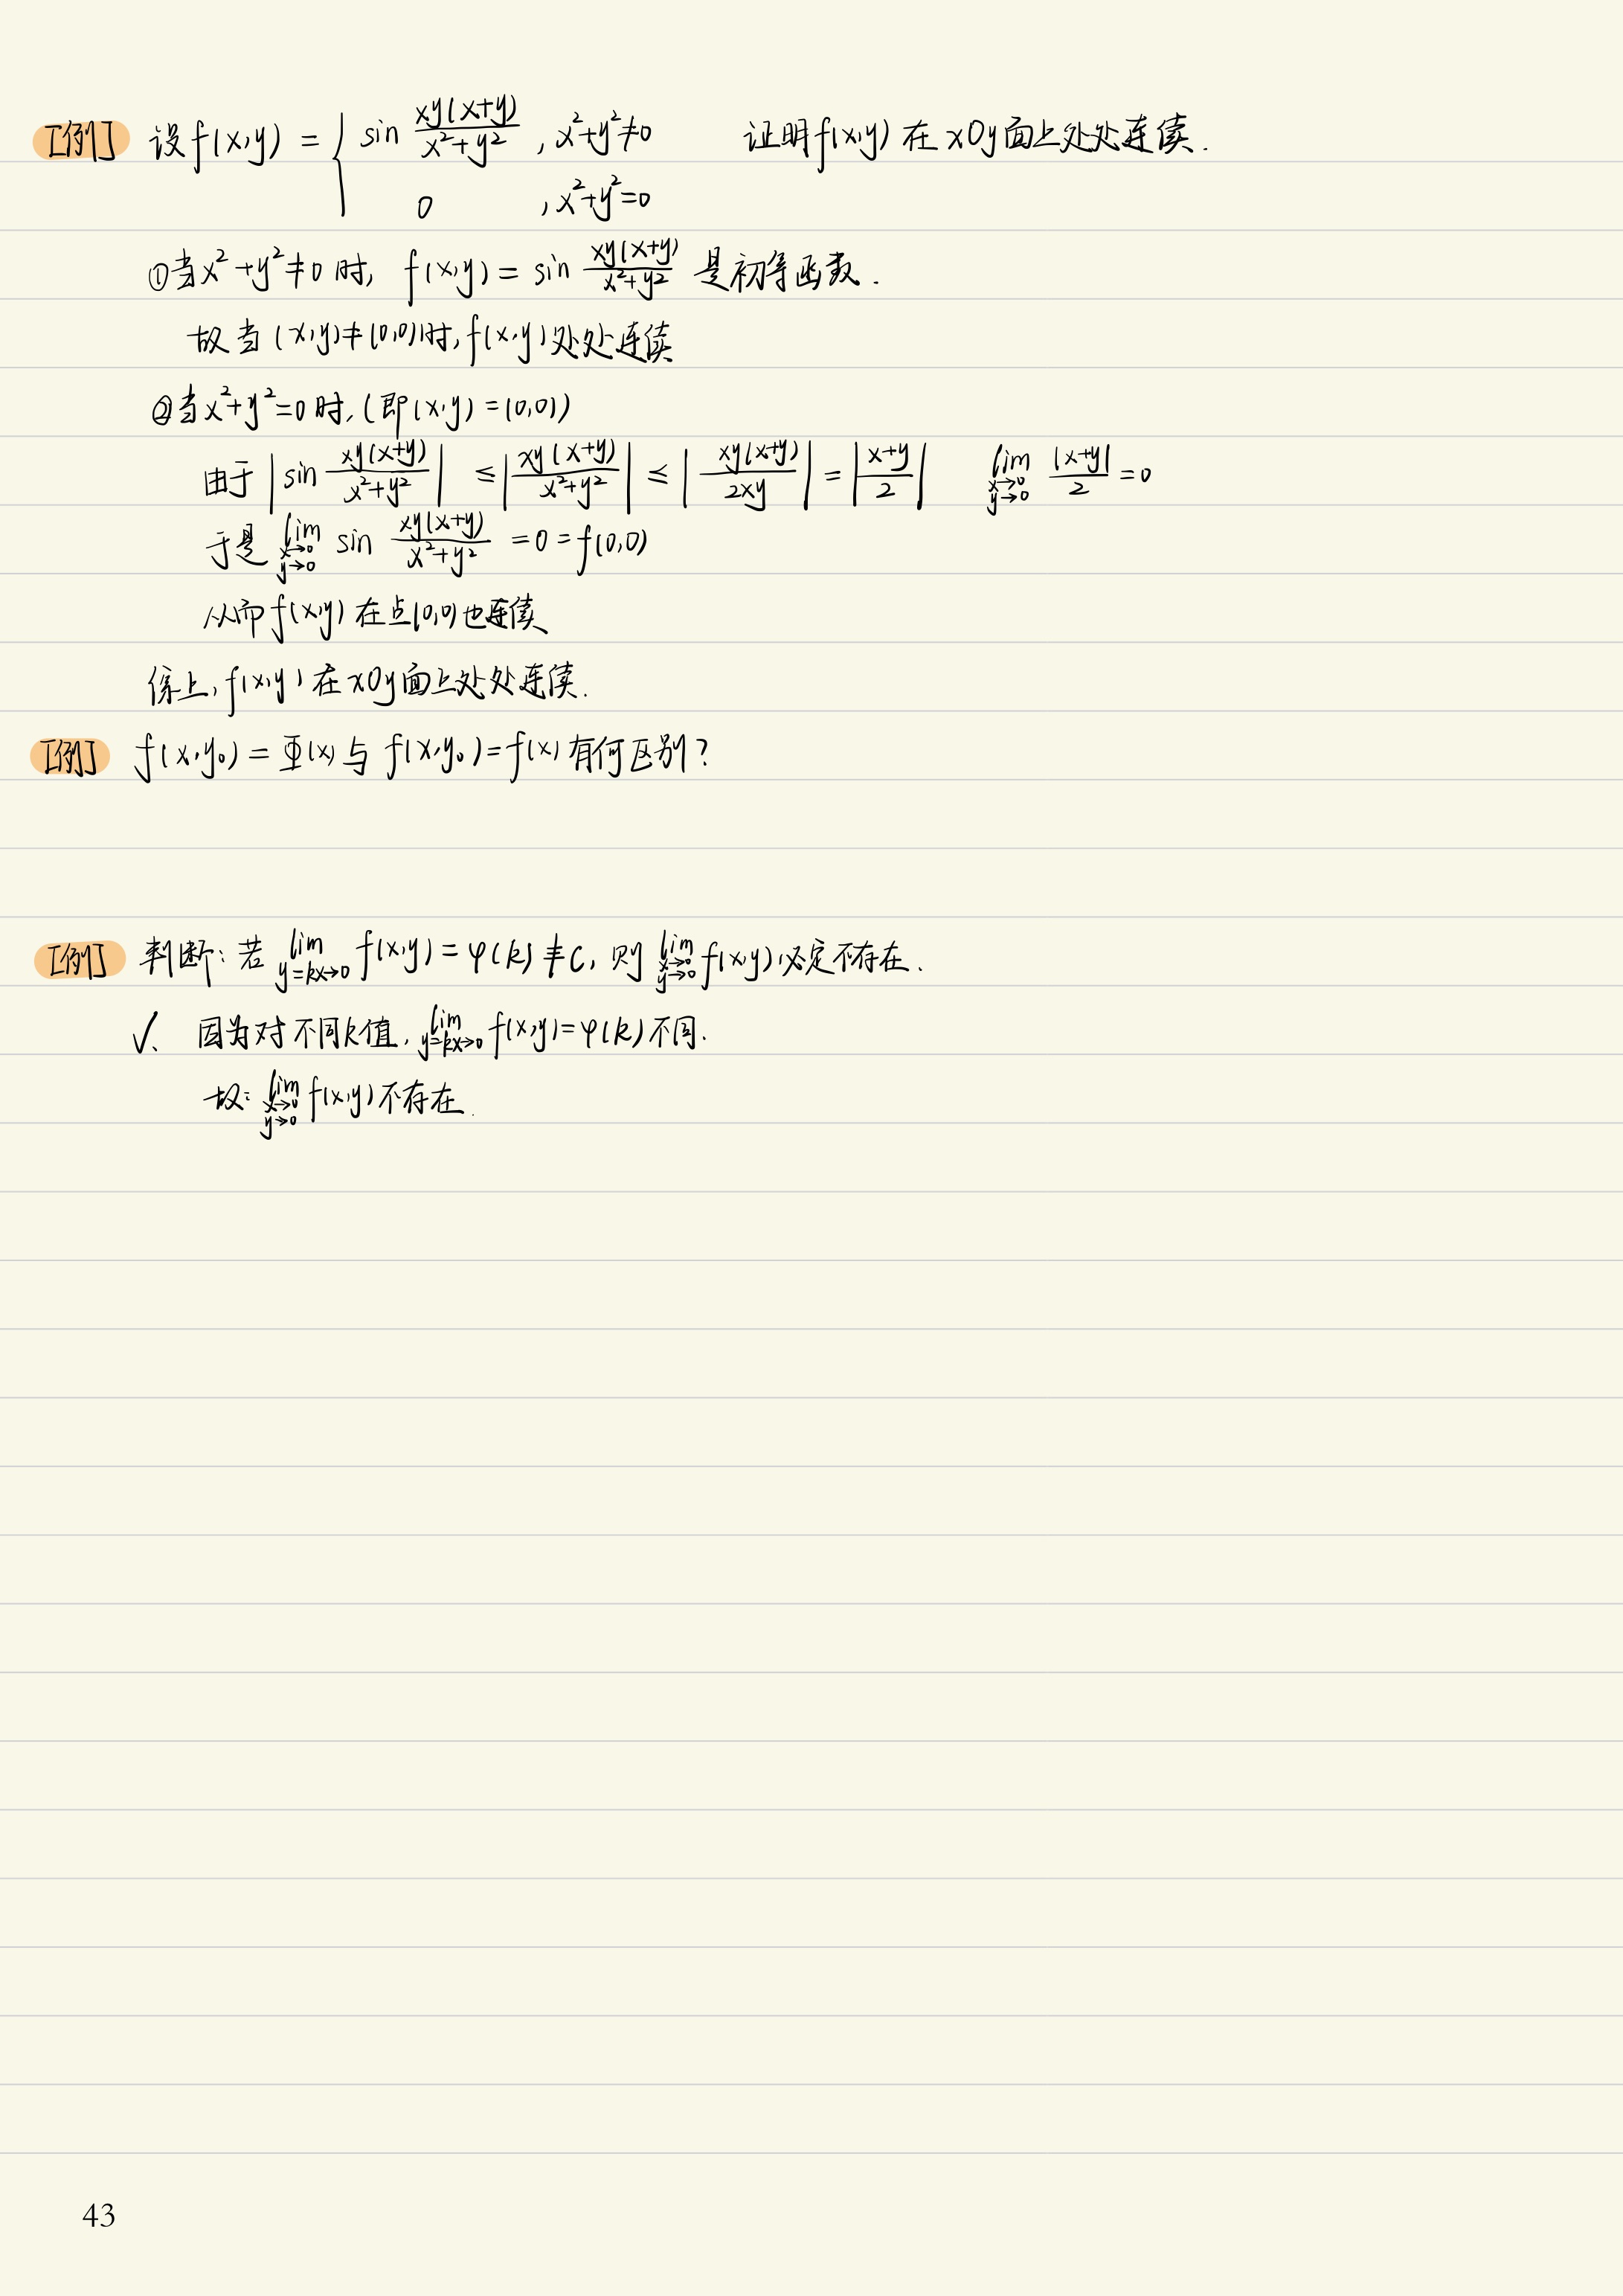 [例] 设f(x,y) = { sin xy(x+y)/(x²+y²) , x²+y²≠0 证明f(x,y)在xOy面上处处连续.
0 , x²+y²=0
①当x²+y²≠0时, f(x,y) = sin xy(x+y)/(x²+y²) 是初等函数.
故当(x,y)≠(0,0)时,f(x,y)处处连续
②当x²+y²=0时,(即(x,y)=(0,0))
由于 |sin xy(x+y)/(x²+y²)| ≤ |xy(x+y)/(x²+y²)| ≤ |xy(x+y)/2xy| = |x+y/2| lim x→0 y→0 |x+y|/2 = 0
于是 lim x→0 y→0 sin xy(x+y)/(x²+y²) = 0 = f(0,0)
从而f(x,y)在点(0,0)也连续
综上,f(x,y)在xOy面上处处连续.
[例] f(x,y₀) = Φ(x)与f(x,y₀)=f(x)有何区别?
[例] 判断:若 lim y=kx→0 f(x,y) = φ(k) ≢ C, 则 lim x→0 y→0 f(x,y)必定不存在.
√. 因为对不同k值, lim y=kx→0 f(x,y)=φ(k)不同.
故: lim x→0 y→0 f(x,y)不存在.
43